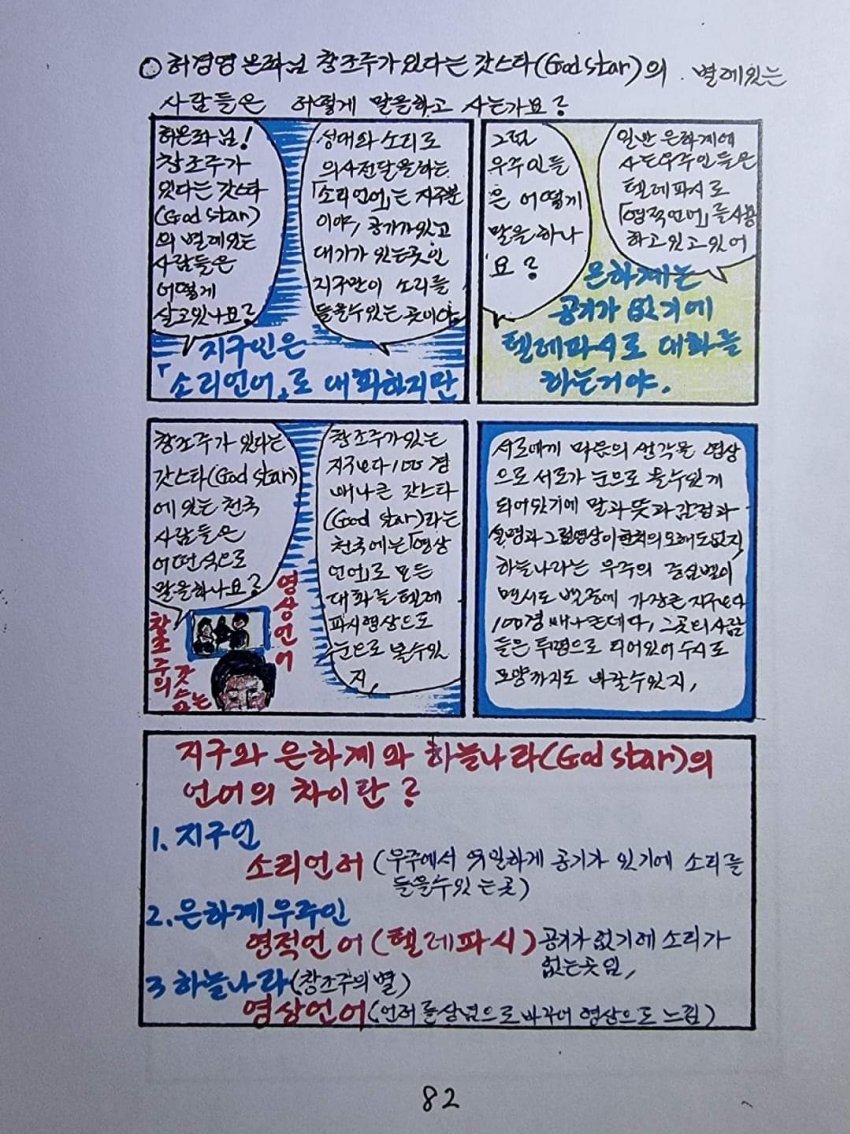 ○ 허경영 은하님 창조주가 있다는 갓스타(God star)의 별에 있는
사람들은 어떻게 말을하고 사는가요?
허은하님!
창조주가
있다는 갓스타
(God star)
의 별에 있는
사람들은
어떻게
살고있나요?
성대와 소리로
의사전달을하는
「소리언어」는 지구뿐
이야, 공기가있고
대기가 있는곳인
지구만이 소리를
들을수있는 곳이야
지구인은
「소리언어」로 대화하지만
그럼
우주인들
은 어떻게
말을 하나
요?
일반 은하계에
사는우주인들은
텔레파시로
「영적언어」를사용
하고 있고 있어
은하계는
공기가 없기에
텔레파시로 대화를
하는거야.
창조주가 있다는
갓스타(God star)
에 있는 천국
사람들은
어떤식으로
말을하나요?
영상언어
창조주의
갓
는
창조주가있는
지구보다 100경
배나큰 갓스타
(God star)라는
천국에는「영상
언어」로 모든
대화를 텔레
파시영상으로
눈으로 볼수있
지,
서로에게 마음의 생각을 영상
으로 서로가 눈으로 볼수있게
되어있기에 말과 뜻과 감정과
설명과 그림영상이 한치의 오해도없지
하늘나라는 우주의 중심별이
면서도 별중에 가장큰 지구보다
100경 배나 큰데다, 그곳의 사람
들은 투명으로 되어있어 수시로
모양까지도 바뀔수있지,
지구와 은하계와 하늘나라(God star)의
언어의 차이란?
1. 지구인
소리언어 (우주에서 유일하게 공기가 있기에 소리를
들을수있는곳)
2. 은하계우주인
영적언어(텔레파시) 공기가없기에 소리가
없는곳임,
3 하늘나라(창조주의별)
영상언어(언어를상념으로바꾸어 영상으로 느낌)
82